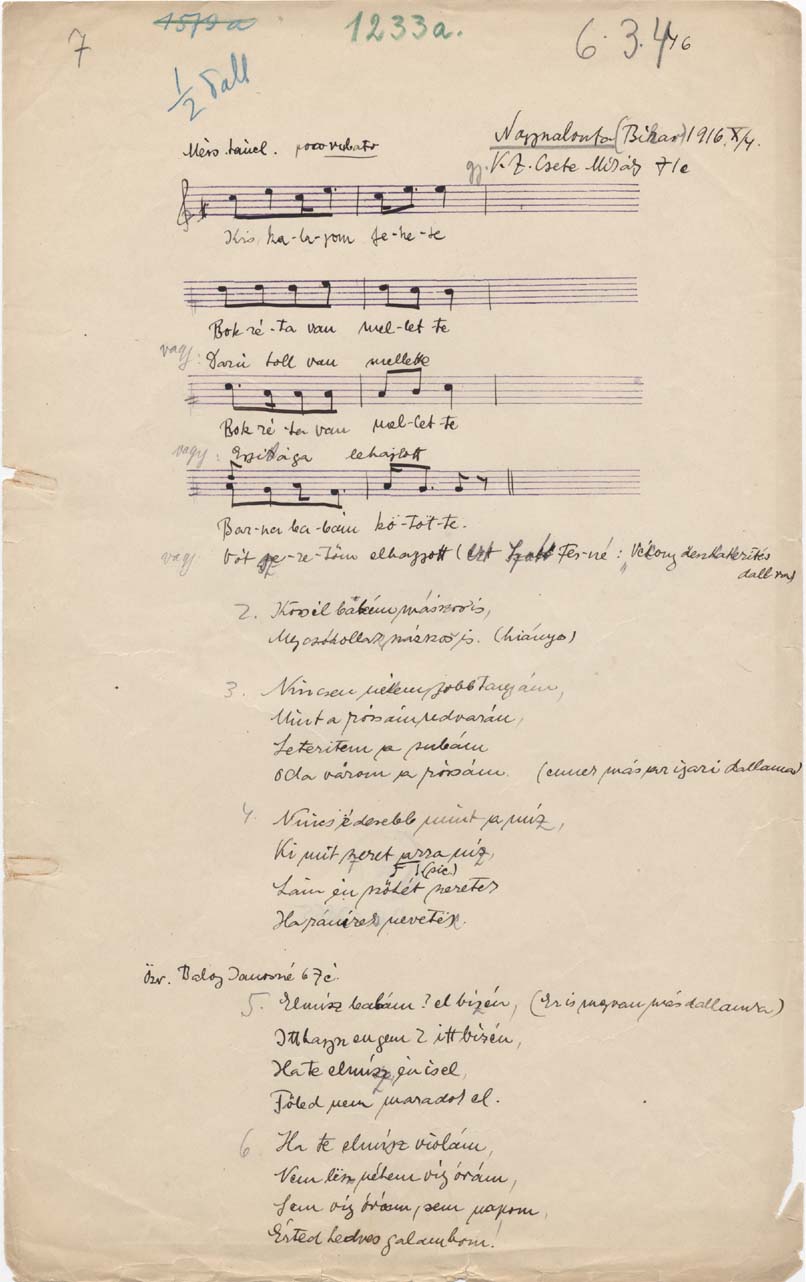 7
1579a
1233a.
6. 3. 4 46
1/2 dall
Nagyszalonta (Bihar) 1916. X/4.
Mérs. táncl. poco rubato
gy. K. Z. Csete Mihály 71é
Kis ka-la-pom fe-ke-te
Bok-ré-ta van mel-let-te
vagy: Darú toll van mellette
Bok-ré-ta van mel-let-te
vagy: lehajlott
Bar-na ba-bám kö-töt-te.
vagy Vót sze-re-tőm elhagyott (ezt Szabó Fer-né: "Vékony deszkakerítés
dallamra)
2. babám máskor is,
Megcsókollak százszor is. (hiányos)
3. Nincsen nékem jobb tanyám,
Mint a rózsám udvarán,
Leteritem a subám
Oda várom a rózsám. (ennek más dallama)
4. Nincs édesebb mint a míz,
Ki mit szeret arra níz,
! (sic)
Lám én szőkét szeretek
Ha rám nevetek.
Özv. Balog Jánosné 67é.
5. Elmísz babám? el bizén, (Ez is megvan más dallamra)
Itt hagysz engem? itt bizén,
Ha te elmísz, én is el,
Tőled nem maradok el.
6 Ha te elmísz violám,
Nem lesz nékem víg órám,
Sem víg órám, sem napom,
Érted kedves galambom!